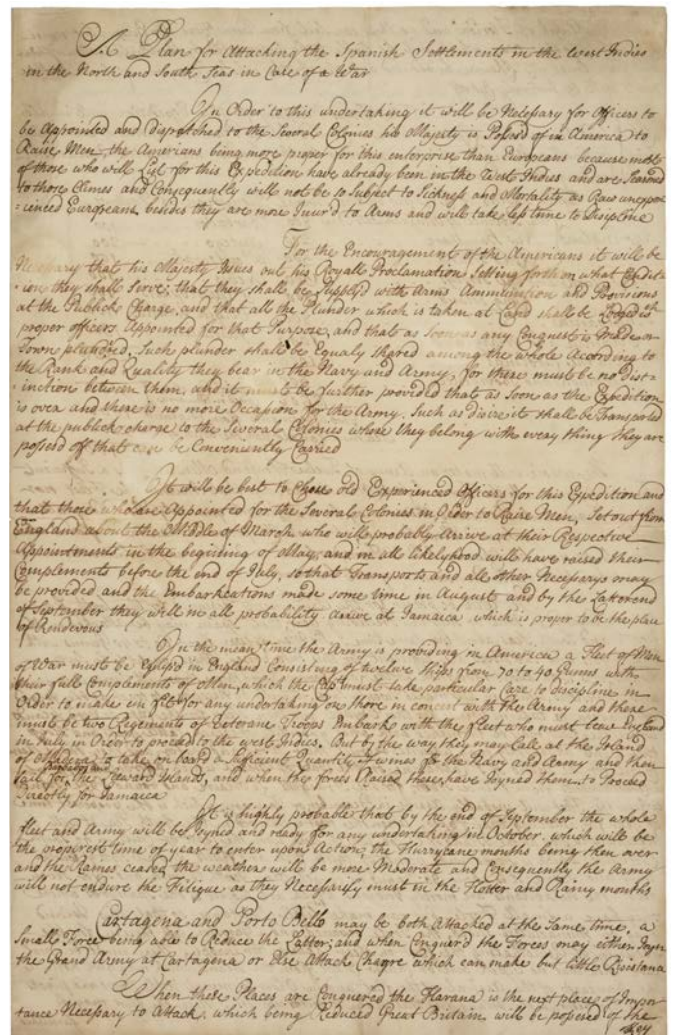 A Plan for Attacking the Spanish Settlements in the West Indies
in the North and South Seas in Case of a War
In Order to this undertaking it will be Necessary for Officers to
be Appointed and Dispatched to the Several Colonies his Majesty is Possed of in America to
Raise Men the Americans being more proper for this enterprise than Europeans because most
of those who will List for this Expedition have already been in the West Indies and are Seasoned
to those Climes and Consequently will not be so Subject to Sickness and Mortality as Raw unexper
=ienced Europeans, besides they are more Inur'd to Arms and will take less time to Discipline
For the Encouragement of the Americans it will be
Necessary that his Majesty Issues out his Royall Proclamation Setting forth on what Expedit
=ion they shall Serve; that they shall be Supply'd with Arms Ammunition and Provisions
at the Publick Charge, and that all the Plunder which is taken at Land shall be Lodged
proper officers Appointed for that Purpose, and that as soon as any Conquest is Made or
Town plundred, Such plunder shall be Equaly shared among the whole According to
the Rank and Quality they bear in the Navy and Army, for there must be no dist=
=inction between them, and it must be further provided that as soon as the Expedition
is over and there is no more Occasion for the Army, Such as desire it shall be Transported
at the publick charge to the Several Colonies where they belong with every thing they are
possesd off that can be Conveniently Carried
It will be best to Chose old Experienced Officers for this Expedition and
that those who are Appointed for the Several Colonies in Order to Raise Men, Set out from
England about the Middle of March who will probably Arive at their Respective
Appointments in the begining of May, and in all likelyhood will have raised their
Complements before the end of July, so that Transports and all other Necessarys may
be provided and the Embarkations made some time in August and by the Latter end
of September they will in all probability arrive at Jamaica which is proper to be the place
of Rendevous
In the mean time the Army is providing in America a Fleet of Men
of War must be in England Consisting of twelve Ships from 70 to 40 Gunns with
their full Complements of Men, which the Capt must take particular Care to discipline in
Order to make em fit for any undertaking on shore in concert with the Army and there
must be two Regiments of Veterane Troops Embark with the fleet who must leave England
in July in Order to proceed to the West Indies. But by the way they may Call at the Island
of Madera to take on board a Sufficient Quantity of wines for the Navy and Army and then
Sail for the Leward Islands, and when the forces Raised there have Joyned them to Proceed
Directly for Jamaica
It is highly probable that by the end of September the whole
fleet and Army will be Joyned and ready for any undertaking in October, which will be
the properest time of year to enter upon Action, the Hurrycane months being then over
and the Raines ceased the weather will be more Moderate and Consequently the Army
will not endure the Fatigue as they Necessarily must in the Hotter and Rainy months
Cartagena and Porto Bello may be both Attacked at the Same time, a
Small Force being able to Reduce the Latter, and when Conquerd the Forces may either Joyn
the Grand Army at Cartagena or Else Attack Chagre which can make but little Resistance
When these Places are Conquered the Havana is the next place of Impor
tance Necessary to Attack, which being Reduced Great Britain will be possesed of the